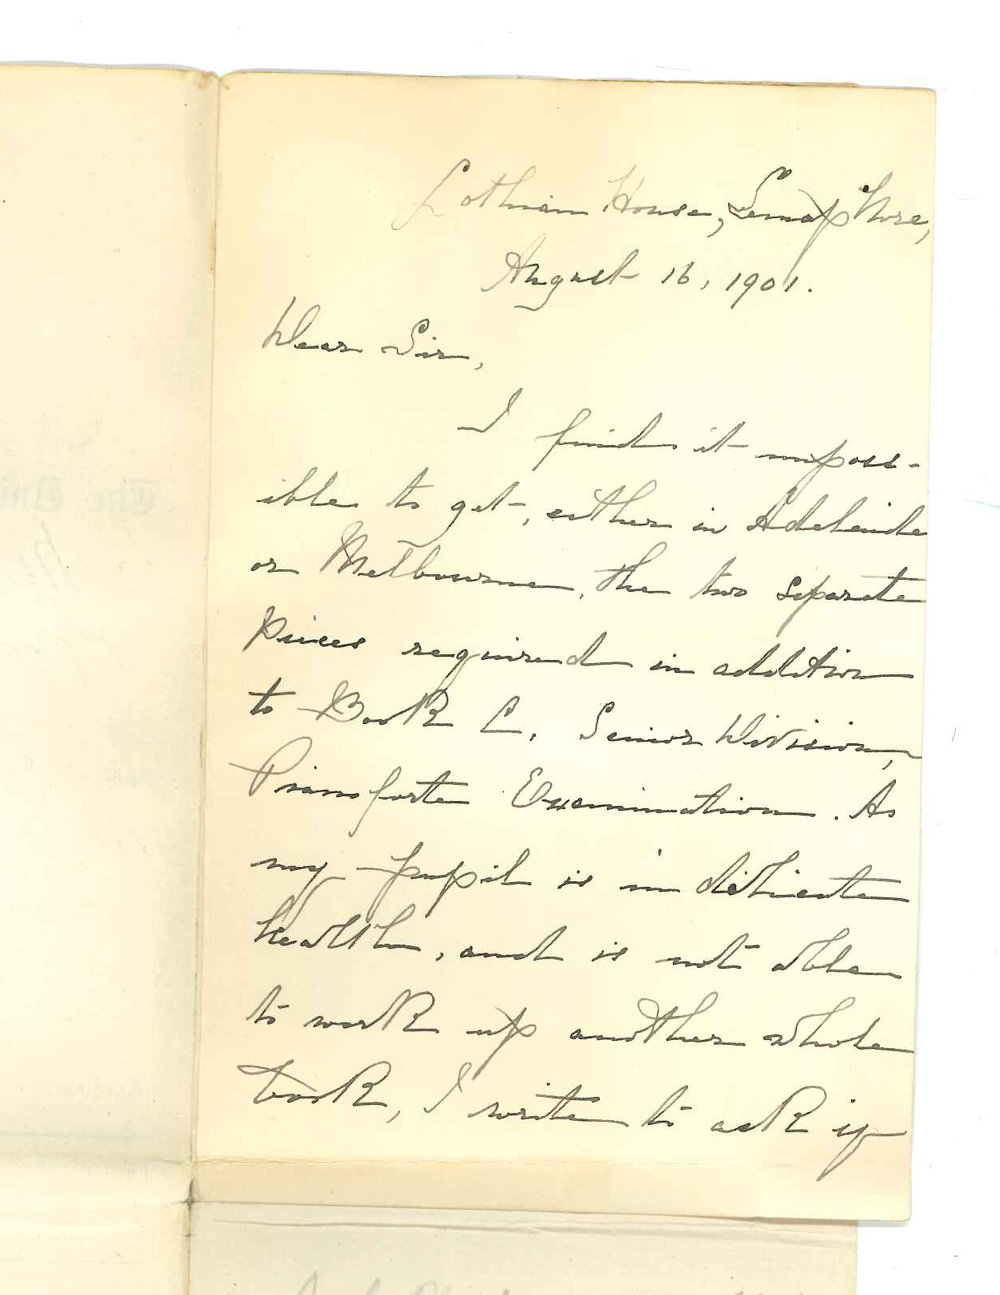 Lothian House, Semaphore,
August 16, 1901.
Dear Sir,
I find it imposs-
ible to get, either in Adelaide
or Melbourne, the two separate
pieces required in addition
to Book C, Senior Division,
Pianoforte Examination. As
my pupil is in delicate
health, and is not able
to work up another whole
book, I write to ask if